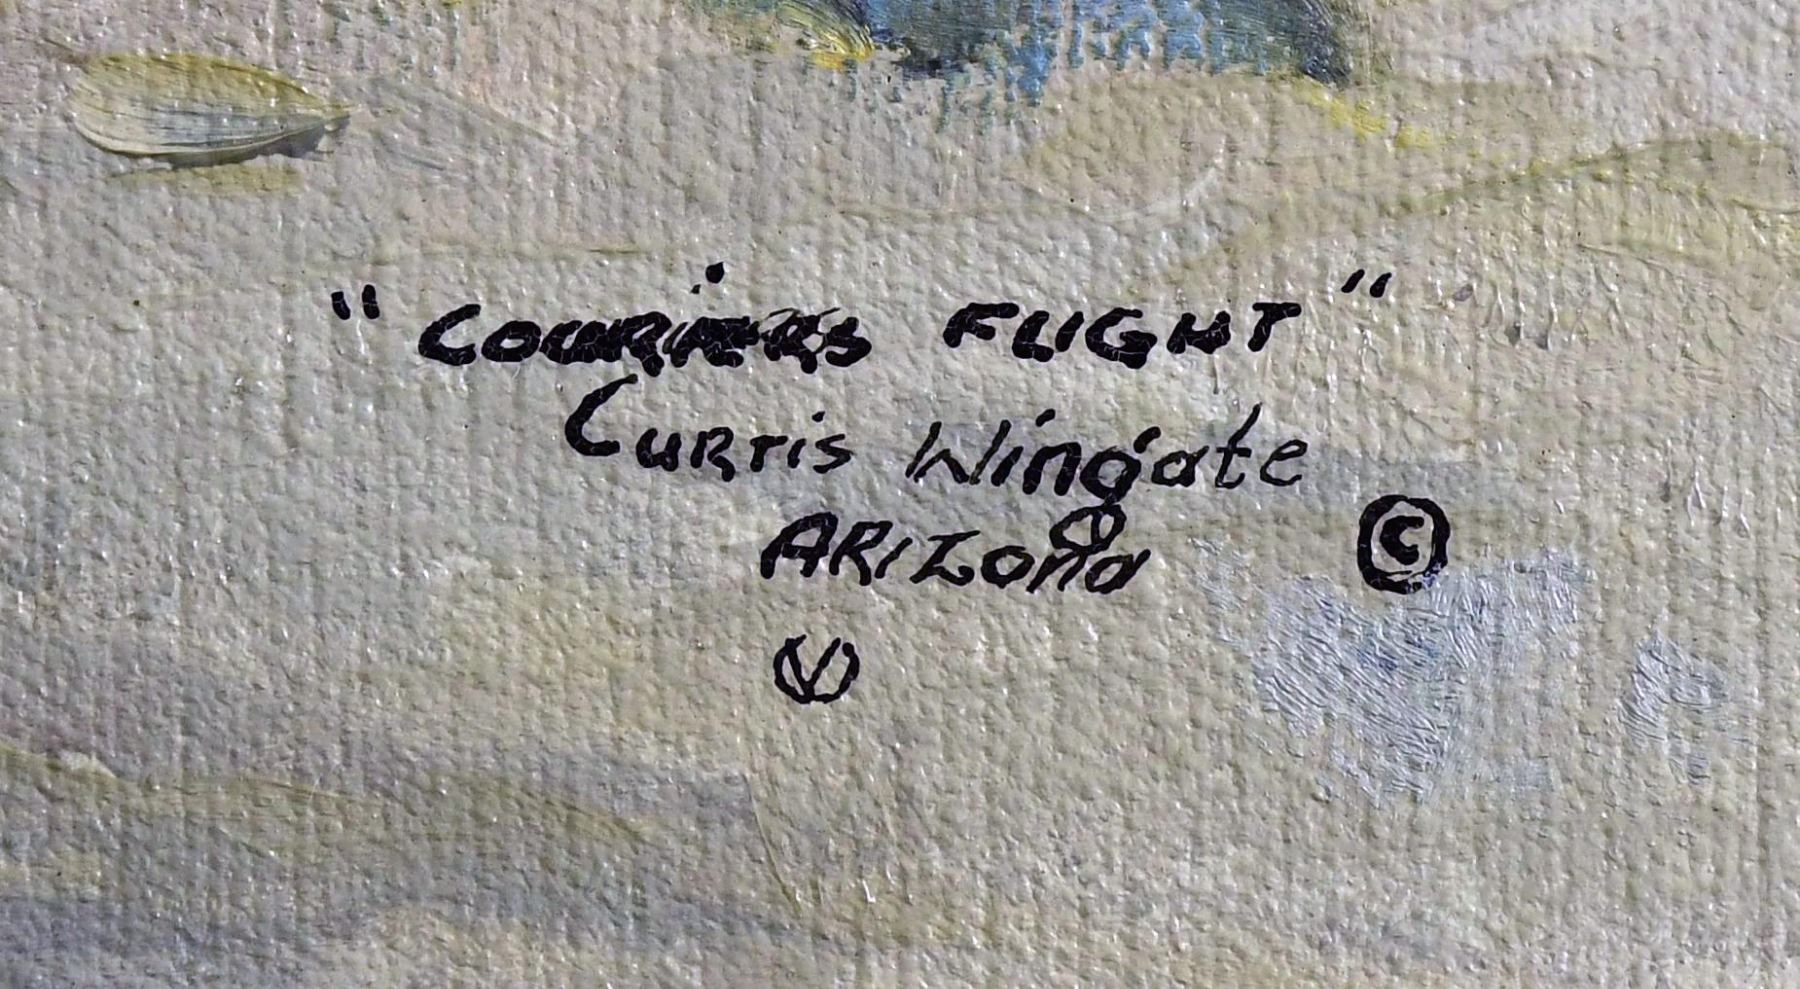 "COURIERS FLIGHT"
CURTIS Wingate
ARIZona ©
V